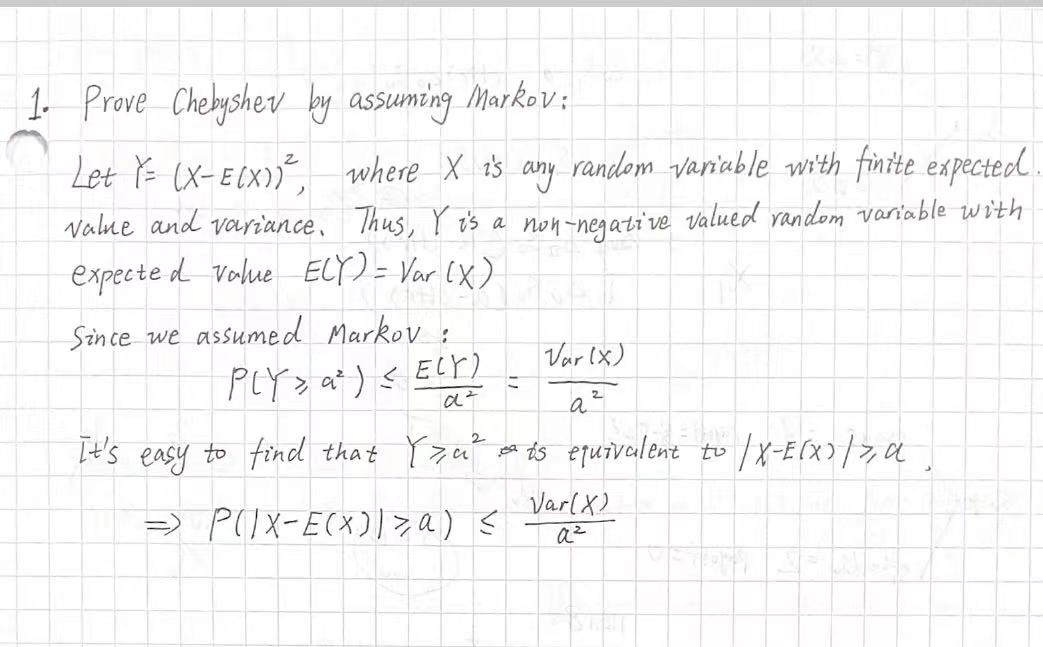 1. Prove Chebyshev by assuming Markov:
Let Y= (X-E(X))², where X is any random variable with finite expected
value and variance. Thus, Y is a non-negative valued random variable with
expected value E(Y) = Var(X)
Since we assumed Markov:
P(Y ≥ a²) ≤ E(Y)/a² = Var(X)/a²
It's easy to find that Y ≥ a² is equivalent to |X-E(X)| ≥ a.
⇒ P(|X-E(X)| ≥ a) ≤ Var(X)/a²